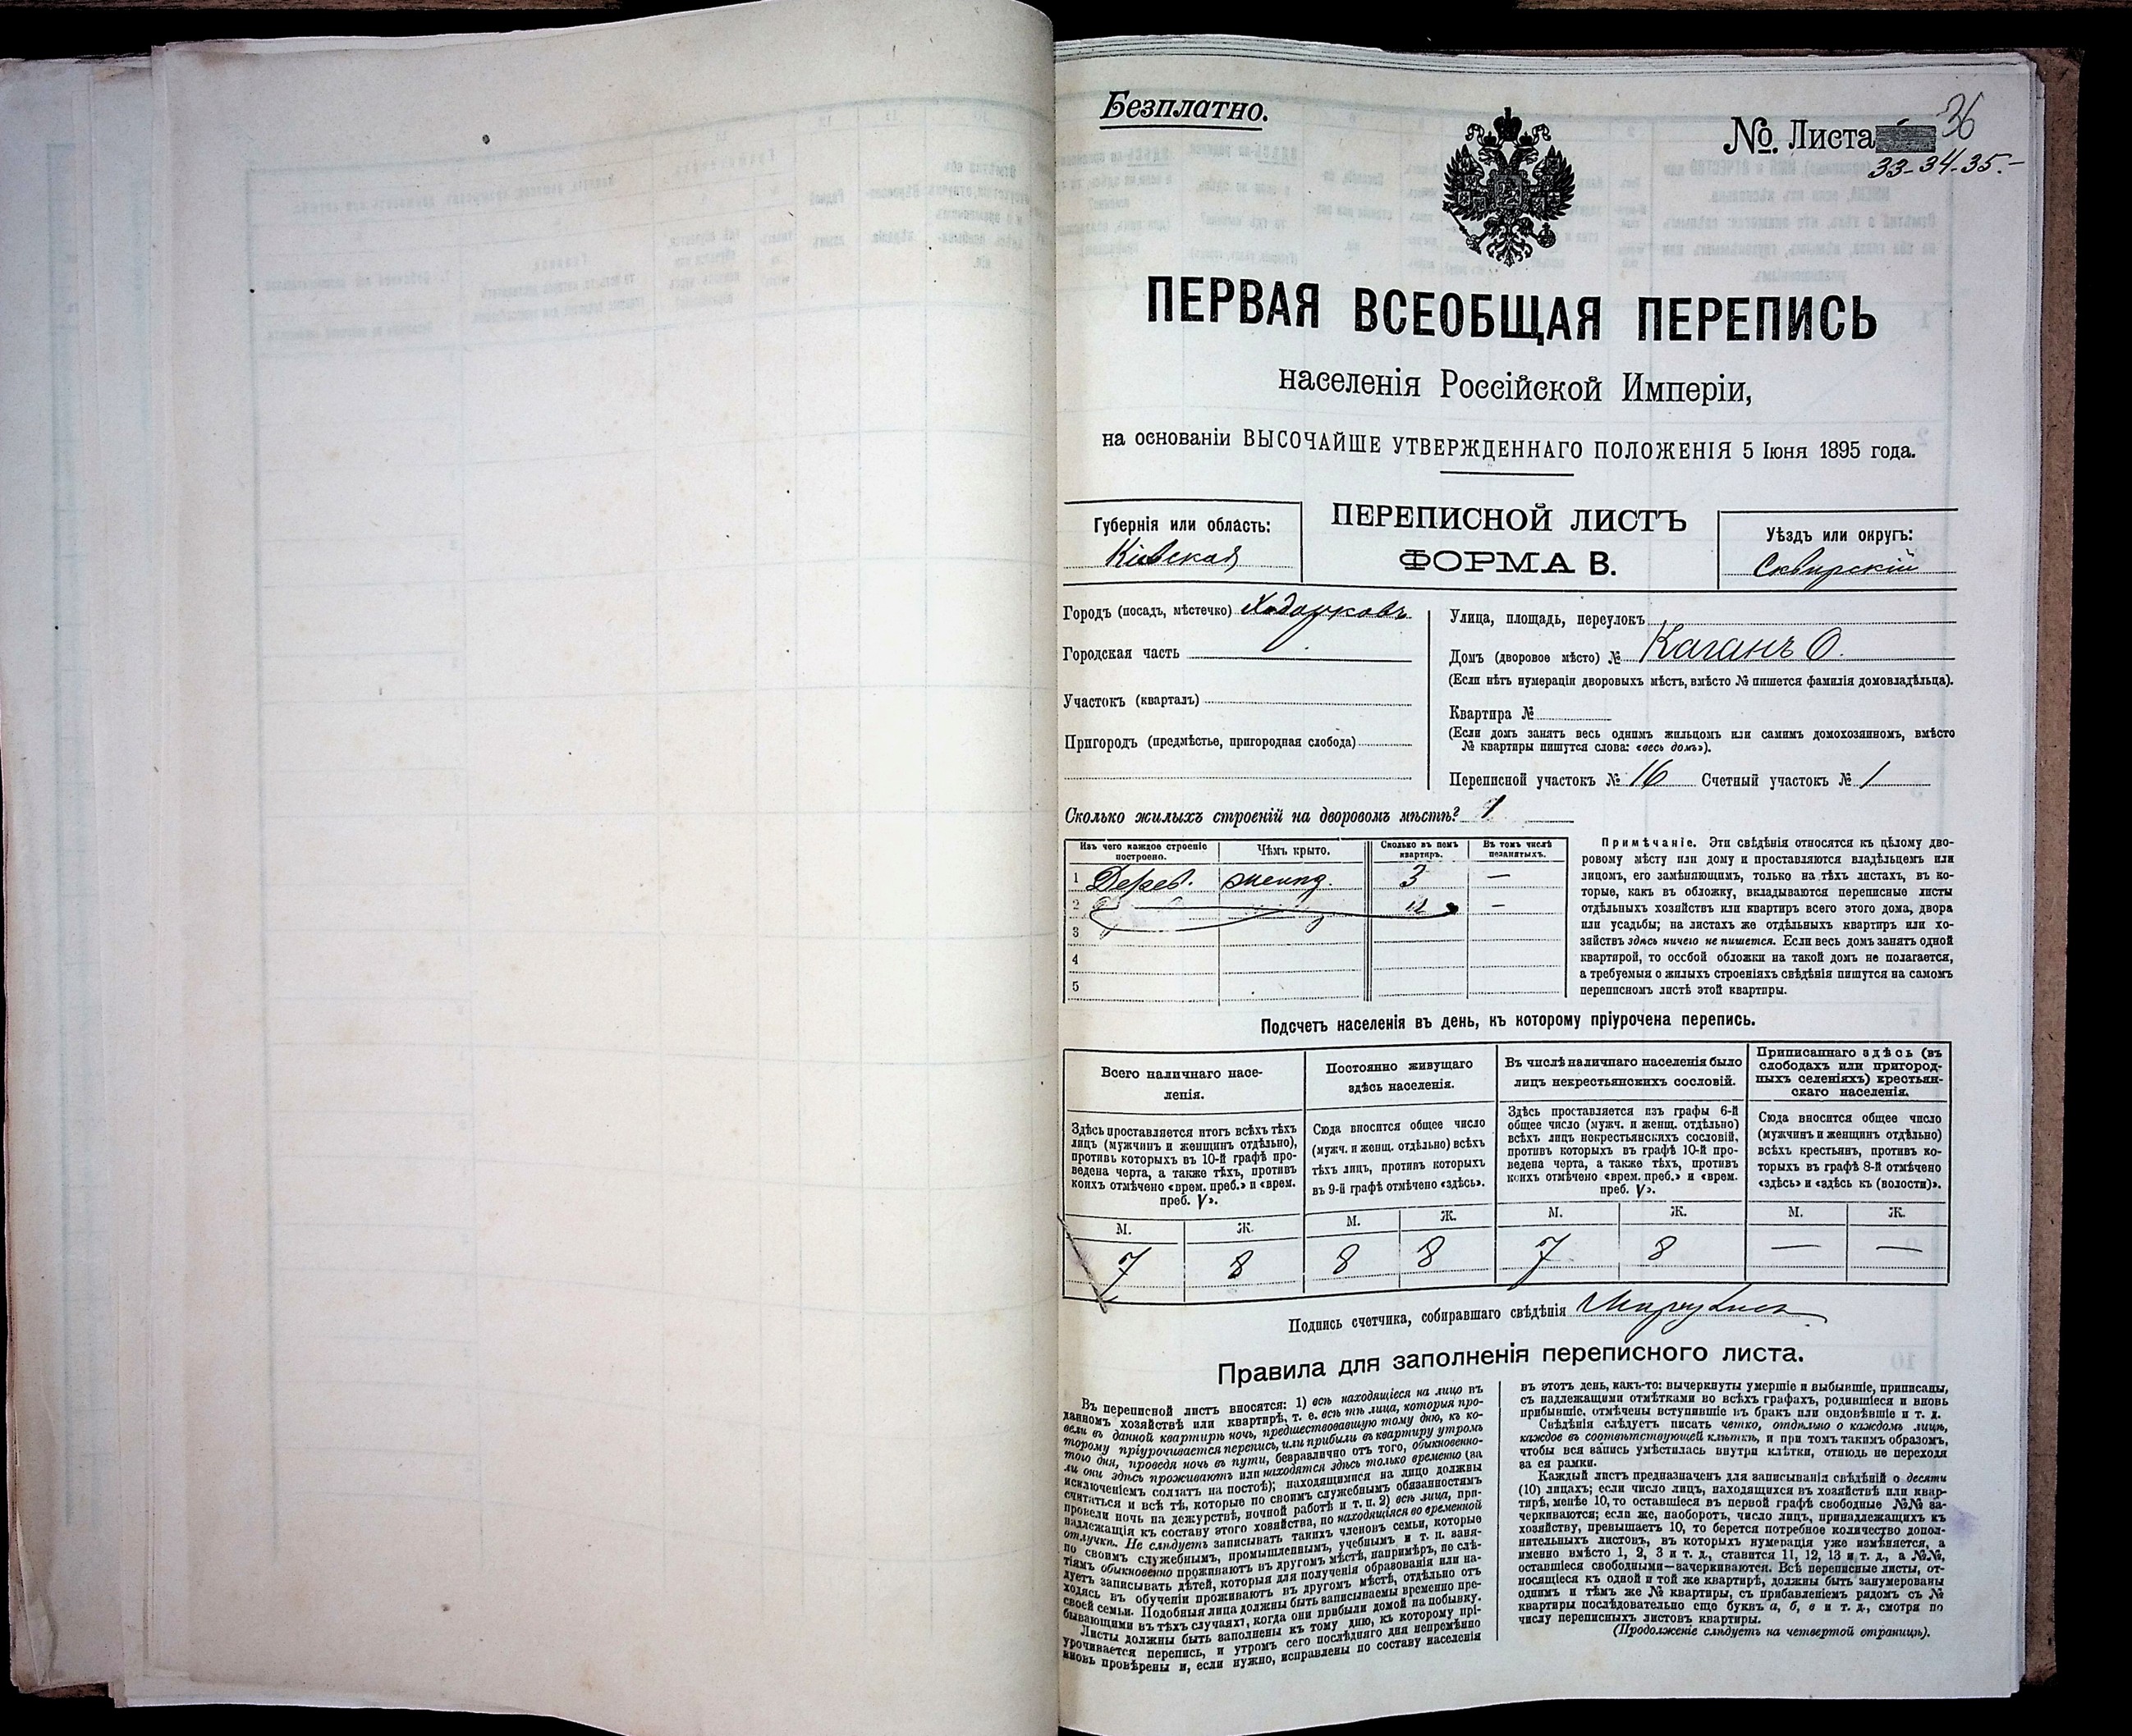 Безплатно.
№. Листа
36
33-34-35.-
ПЕРВАЯ ВСЕОБЩАЯ ПЕРЕПИСЬ
населенія Россійской Имперіи,
на основаніи ВЫСОЧАЙШЕ УТВЕРЖДЕННАГО ПОЛОЖЕНІЯ 5 Іюня 1895 года.
Губернія или область:
Кіевская
ПЕРЕПИСНОЙ ЛИСТЪ
ФОРМА В.
Уѣздъ или округъ:
Сквирскій
Городъ (посадъ, мѣстечко) Ходорковъ
Городская часть
Участокъ (кварталъ)
Пригородъ (предмѣстье, пригородная слобода)
Улица, площадь, переулокъ
Домъ (дворовое мѣсто) № Каганъ О.
(Если нѣтъ нумераціи дворовыхъ мѣстъ, вмѣсто № пишется фамилія домовладѣльца).
Квартира №
(Если домъ занятъ весь однимъ жильцомъ или самимъ домохозяиномъ, вмѣсто
№ квартиры пишутся слова: «весь домъ»).
Переписной участокъ № 16 Счетный участокъ № 1
Сколько жилыхъ строеній на дворовомъ мѣстѣ? 1
Изъ чего каждое строеніе
построено.
Чѣмъ крыто.
Сколько въ немъ
квартиръ.
Въ томъ числѣ
незанятыхъ.
1 Дерев. 3 —
2 —
3
4
5
Примѣчаніе. Эти свѣдѣнія относятся къ цѣлому дво-
ровому мѣсту или дому и проставляются владѣльцемъ или
лицомъ, его замѣняющимъ, только на тѣхъ листахъ, въ ко-
торые, какъ въ обложку, вкладываются переписные листы
отдѣльныхъ хозяйствъ или квартиръ всего этого дома, двора
или усадьбы; на листахъ же отдѣльныхъ квартиръ или хо-
зяйствъ здѣсь ничего не пишется. Если весь домъ занятъ одной
квартирой, то особой обложки на такой домъ не полагается,
а требуемыя о жилыхъ строеніяхъ свѣдѣнія пишутся на самомъ
переписномъ листѣ этой квартиры.
Подсчетъ населенія въ день, къ которому пріурочена перепись.
Всего наличнаго насе-
ленія.
Здѣсь проставляется итогъ всѣхъ тѣхъ
лицъ (мужчинъ и женщинъ отдѣльно),
противъ которыхъ въ 10-й графѣ про-
ведена черта, а также тѣхъ, противъ
коихъ отмѣчено «врем. преб.» и «врем.
преб. V».
Постоянно живущаго
здѣсь населенія.
Сюда вносится общее число
(мужч. и женщ. отдѣльно) всѣхъ
тѣхъ лицъ, противъ которыхъ
въ 9-й графѣ отмѣчено «здѣсь».
Въ числѣ наличнаго населенія было
лицъ некрестьянскихъ сословій.
Здѣсь проставляется изъ графы 6-й
общее число (мужч. и женщ. отдѣльно)
всѣхъ лицъ некрестьянскихъ сословій,
противъ которыхъ въ графѣ 10-й про-
ведена черта, а также тѣхъ, противъ
коихъ отмѣчено «врем. преб.» и «врем.
преб. V».
Приписаннаго здѣсь (въ
слободахъ или пригород-
ныхъ селеніяхъ) крестьян-
скаго населенія.
Сюда вносится общее число
(мужчинъ и женщинъ отдѣльно)
всѣхъ крестьянъ, противъ ко-
торыхъ въ графѣ 8-й отмѣчено
«здѣсь» и «здѣсь къ (волости)».
М. Ж. М. Ж. М. Ж. М. Ж.
7 8 8 8 7 8 — —
Подпись счетчика, собиравшаго свѣдѣнія
Правила для заполненія переписного листа.
Въ переписной листъ вносятся: 1) всѣ находящіеся на лицо въ
данномъ хозяйствѣ или квартирѣ, т. е. всѣ тѣ лица, которыя про-
вели въ данной квартирѣ ночь, предшествовавшую тому дню, къ ко-
торому пріурочивается перепись, или прибыли въ квартиру утромъ
того дня, проведя ночь въ пути, безразлично отъ того, обыкновенно-
ли они здѣсь проживаютъ или находятся здѣсь только временно (за
исключеніемъ солдатъ на постоѣ); находящимися на лицо должны
считаться и всѣ тѣ, которые по своимъ служебнымъ обязанностямъ
провели ночь на дежурствѣ, ночной работѣ и т. п. 2) всѣ лица, при-
надлежащія къ составу этого хозяйства, но находящіяся во временной
отлучкѣ. Не слѣдуетъ записывать такихъ членовъ семьи, которые
по своимъ служебнымъ, промышленнымъ, учебнымъ и т. п. заня-
тіямъ обыкновенно проживаютъ въ другомъ мѣстѣ, напримѣръ, не слѣ-
дуетъ записывать дѣтей, которыя для полученія образованія или на-
ходясь въ обученіи проживаютъ въ другомъ мѣстѣ, отдѣльно отъ
своей семьи. Подобныя лица должны быть записываемы временно пре-
бывающими въ тѣхъ случаяхъ, когда они прибыли домой на побывку.
Листы должны быть заполнены къ тому дню, къ которому прі-
урочивается перепись, и утромъ сего послѣдняго дня непремѣнно
вновь провѣрены и, если нужно, исправлены по составу населенія
въ этотъ день, какъ-то: вычеркнуты умершіе и выбывшіе, приписаны,
съ надлежащими отмѣтками во всѣхъ графахъ, родившіеся и вновь
прибывшіе, отмѣчены вступившіе въ бракъ или овдовѣвшіе и т. д.
Свѣдѣнія слѣдуетъ писать четко, отдѣльно о каждомъ лицѣ,
каждое въ соотвѣтствующей клѣткѣ, и при томъ такимъ образомъ,
чтобы вся запись умѣстилась внутри клѣтки, отнюдь не переходя
за ея рамки.
Каждый листъ предназначенъ для записыванія свѣдѣній о десяти
(10) лицахъ; если число лицъ, находящихся въ хозяйствѣ или квар-
тирѣ, менѣе 10, то оставшіеся въ первой графѣ свободные №№ за-
черкиваются; если же, наоборотъ, число лицъ, принадлежащихъ къ
хозяйству, превышаетъ 10, то берется потребное количество допол-
нительныхъ листовъ, въ которыхъ нумерація уже измѣняется, а
именно вмѣсто 1, 2, 3 и т. д., ставится 11, 12, 13 и т. д., а №№,
оставшіеся свободными—зачеркиваются. Всѣ переписные листы, от-
носящіеся къ одной и той же квартирѣ, должны быть занумерованы
однимъ и тѣмъ же № квартиры, съ прибавленіемъ рядомъ съ №
квартиры послѣдовательно еще буквъ а, б, в и т. д., смотря по
числу переписныхъ листовъ квартиры.
(Продолженіе слѣдуетъ на четвертой страницѣ).